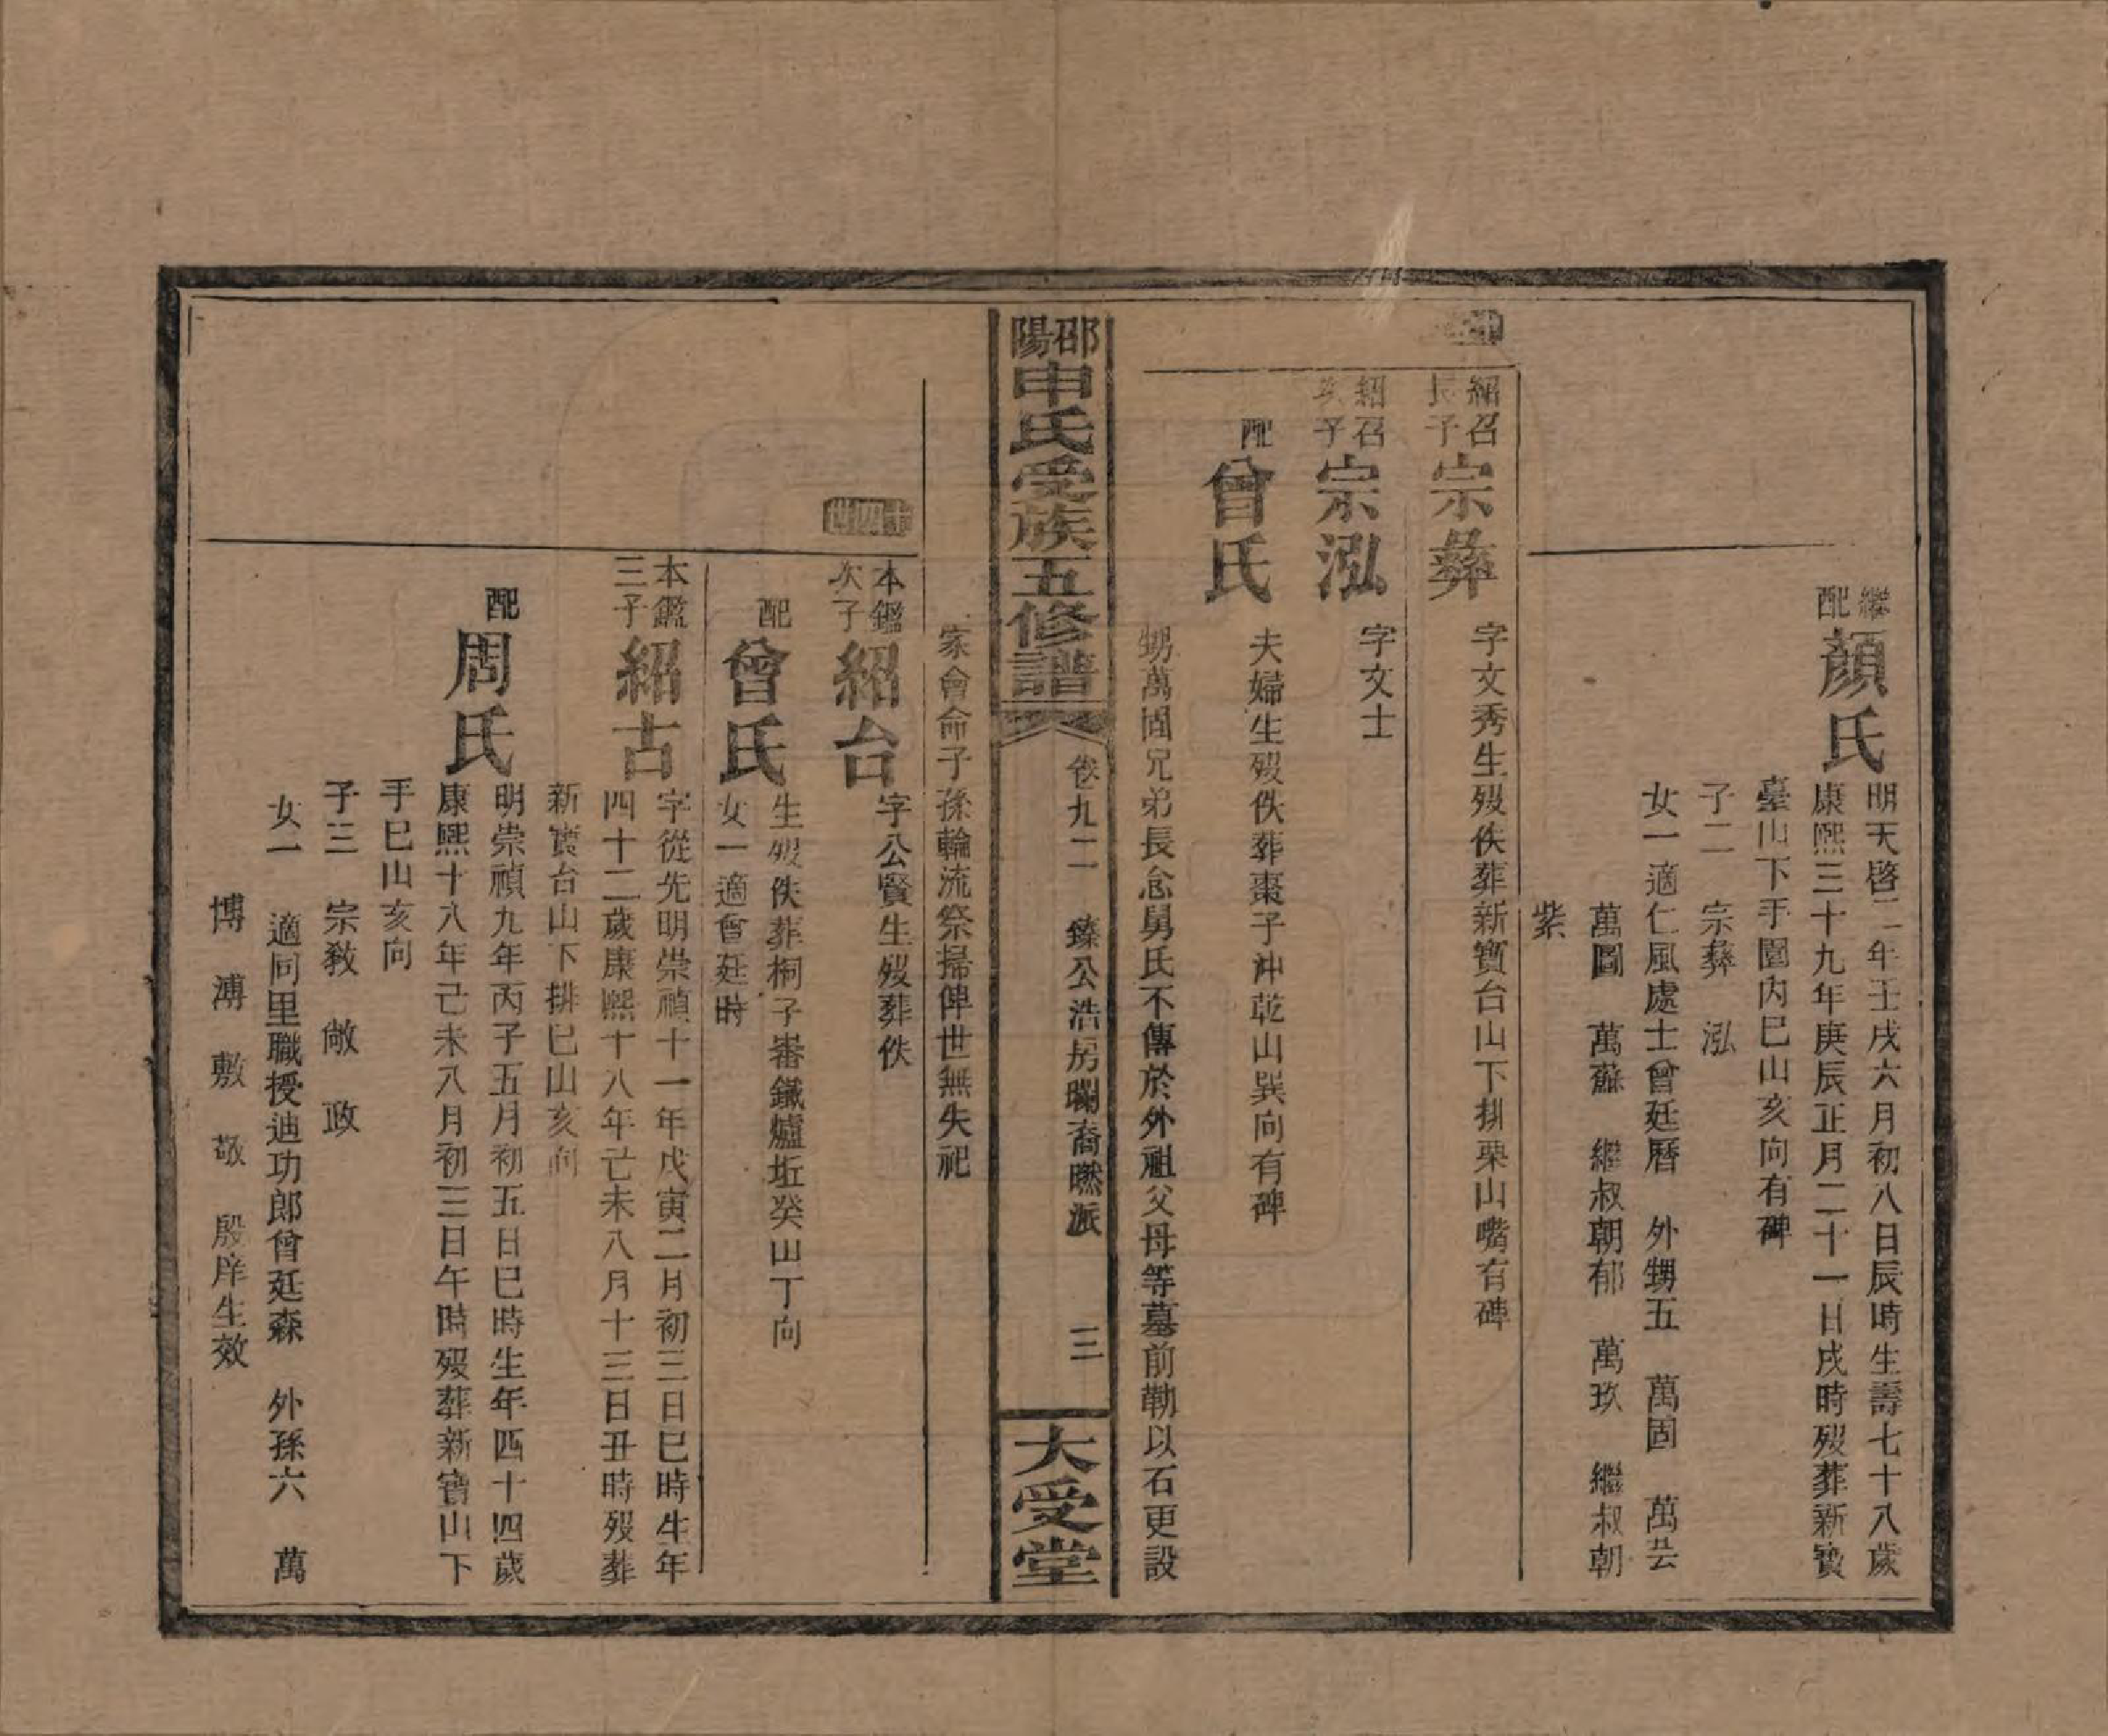 繼配顏氏
明天啓二年壬戌六月初八日辰時生壽七十八歲
康熙三十九年庚辰正月二十一日戌時歿葬新寶
臺山下手圍內巳山亥向有碑
子二　宗彝　泓
女一適仁風處士曾廷曆　外甥五　萬固　萬芸
萬圖　萬蘇　繼叔朝郁　萬玖　繼叔朝
紫
紹召長子宗彝
字文秀生歿佚葬新寶台山下排栗山嘴有碑
紹召次子宗泓
字文士
配曾氏
夫婦生歿佚葬棗子沖乾山巽向有碑
甥萬固兄弟長念舅氏不傳於外祖父母等墓前勒以石更設
邵陽申氏受族五修譜
卷九二　臻公浩房瓓裔㦓派　三
大受堂
家會命子孫輪流祭掃俾世無失祀
十四世
本鑑次子紹台
字公賢生歿葬佚
配曾氏
生歿佚葬桐子崙鐵爐坵癸山丁向
女一適曾廷時
本鑑三子紹古
字從先明崇禎十一年戊寅二月初三日巳時生年
四十二歲康熙十八年己未八月十三日丑時歿葬
新寶台山下排巳山亥向
配周氏
明崇禎九年丙子五月初五日巳時生年四十四歲
康熙十八年己未八月初三日午時歿葬新寶山下
手巳山亥向
子三　宗敎　敞　政
女一　適同里職授迪功郎曾廷森　外孫六　萬
博　溥　敷　敬　殷庠生效